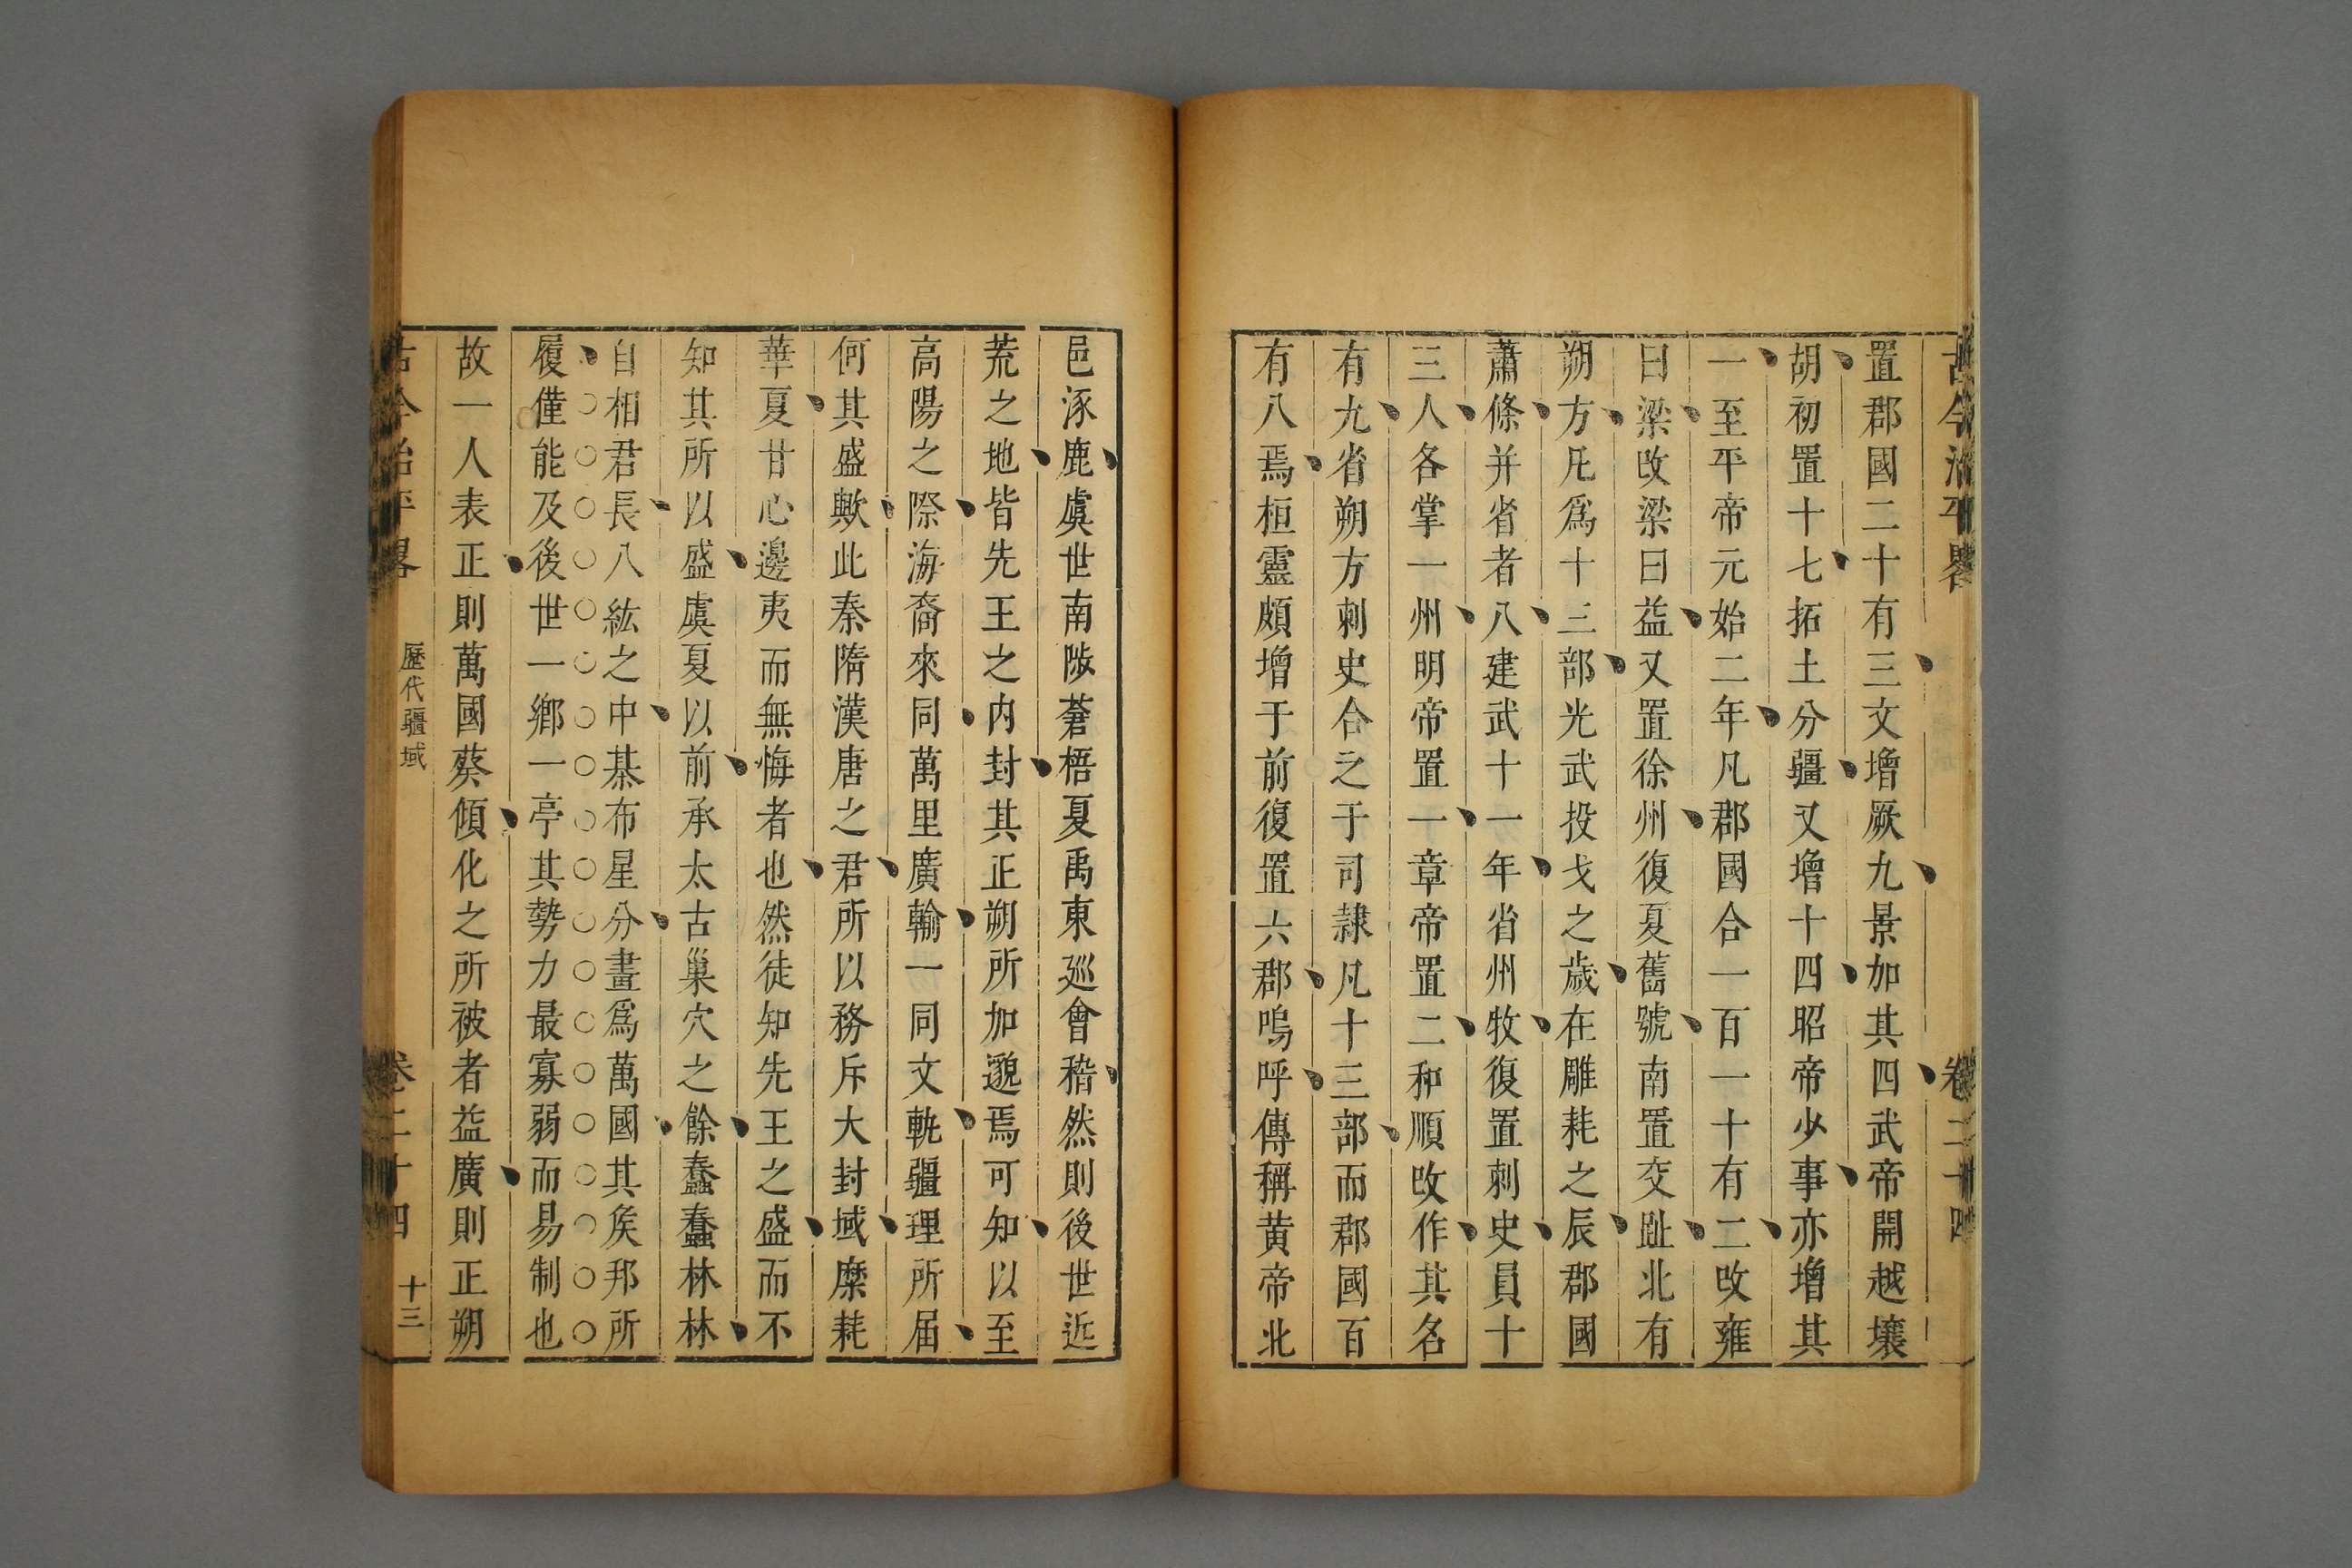 古今治平畧 卷二十四
置郡國二十有三文增厥九景加其四武帝開越壤
胡初置十七拓土分疆又增十四昭帝少事亦增其
一至平帝元始二年凡郡國合一百一十有二改雍
曰梁改梁曰益又置徐州復夏舊號南置交趾北有
朔方凡爲十三部光武投戈之歲在雕耗之辰郡國
蕭條并省者八建武十一年省州牧復置刺史員十
三人各掌一州明帝置一章帝置二和順改作其名
有九省朔方刺史合之于司隷凡十三部而郡國百
有八焉桓靈頗增于前復置六郡嗚呼傳稱黄帝北
邑涿鹿虞世南陟蒼梧夏禹東廵會稽然則後世近
荒之地皆先王之内封其正朔所加邈焉可知以至
高陽之際海裔來同萬里廣輸一同文軌疆理所届
何其盛歟此秦隋漢唐之君所以務斥大封域糜耗
華夏甘心邊夷而無悔者也然徒知先王之盛而不
知其所以盛虞夏以前承太古巢穴之餘蠢蠢林林
自相君長八紘之中棊布星分畫爲萬國其矦邦所
履僅能及後世一鄉一亭其勢力最寡弱而易制也
故一人表正則萬國葵傾化之所被者益廣則正朔
古今治平畧 歷代疆域 卷二十四 十三